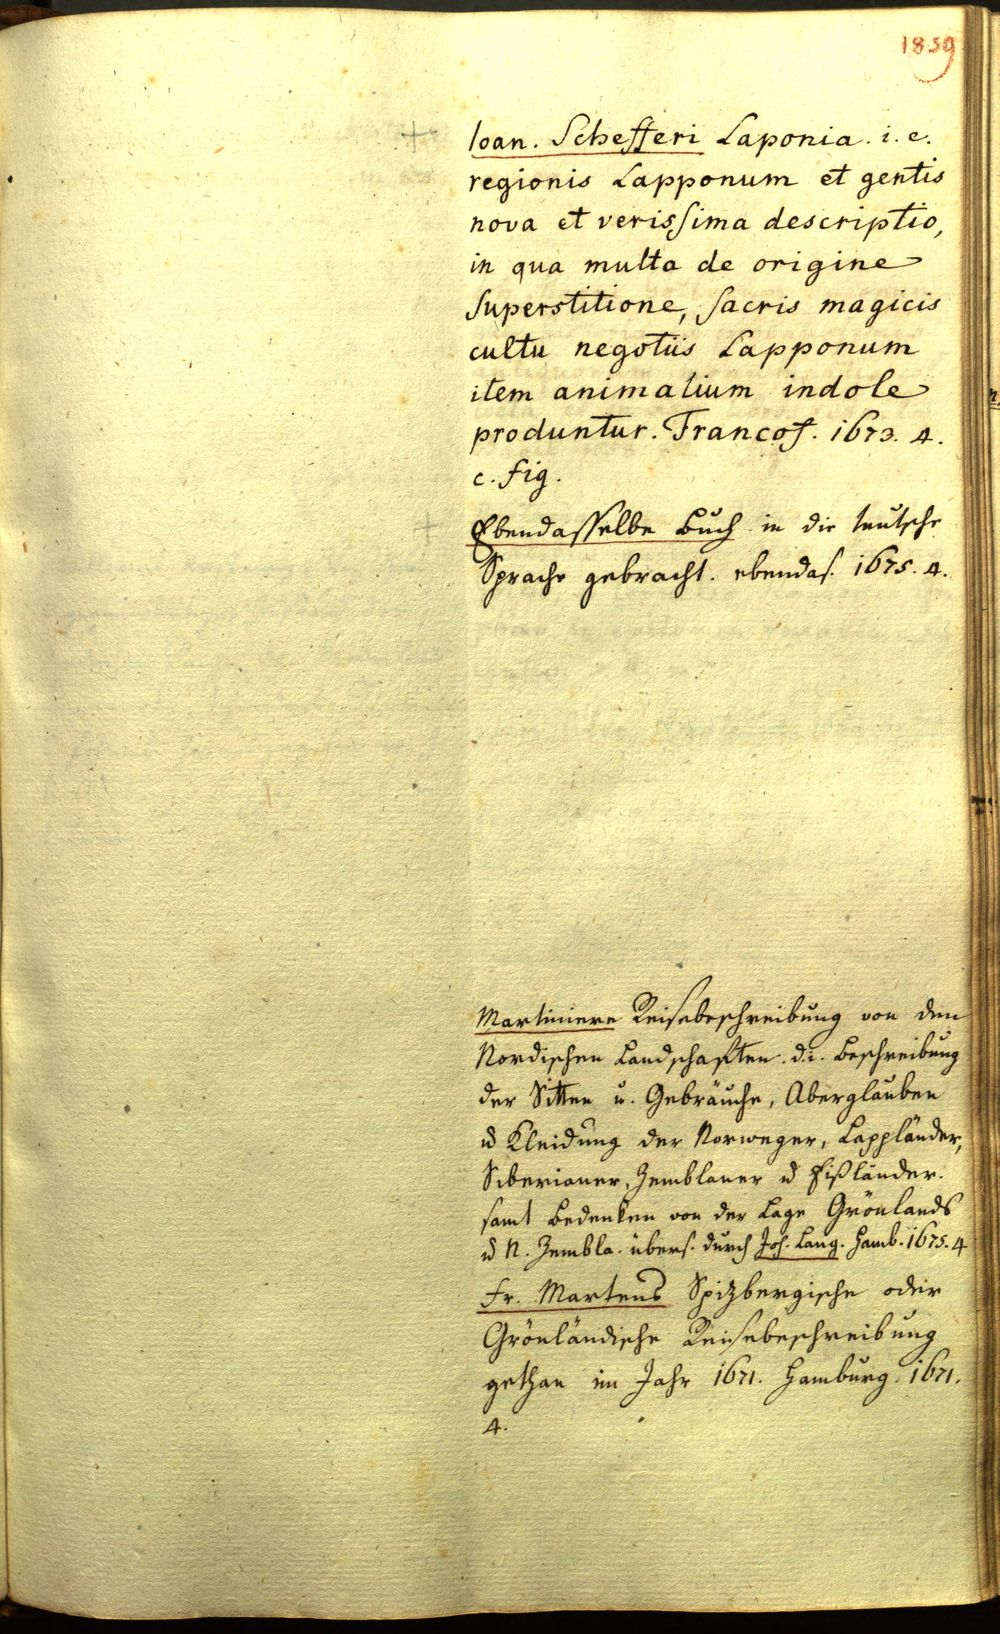 1859
Ioan. Schefferi Laponia. i. e.
regionis Lapponum et gentis
nova et verissima descriptio,
in qua multa de origine
superstitione, sacris magicis
cultu negotiis Lapponum
item animalium indole
produntur. Francof. 1673. 4.
c. fig.
Ebendasselbe Buch in die teutsche
Sprache gebracht. ebendas. 1675. 4.
Martiniere Reisebeschreibung von den
Nordischen Landschaften. d. i. Beschreibung
der Sitten u. Gebräuche, Aberglauben
u Kleidung der Norweger, Lappländer,
Siberianer, Zemblaner u Eißländer.
samt Bedenken von der Lage Grönlands
u N. Zembla. übers. durch Joh. Lang. Hamb. 1675. 4
Fr. Martens Spizbergische oder
Grönländische Reisebeschreibung
gethan im Jahr 1671. Hamburg. 1671.
4.